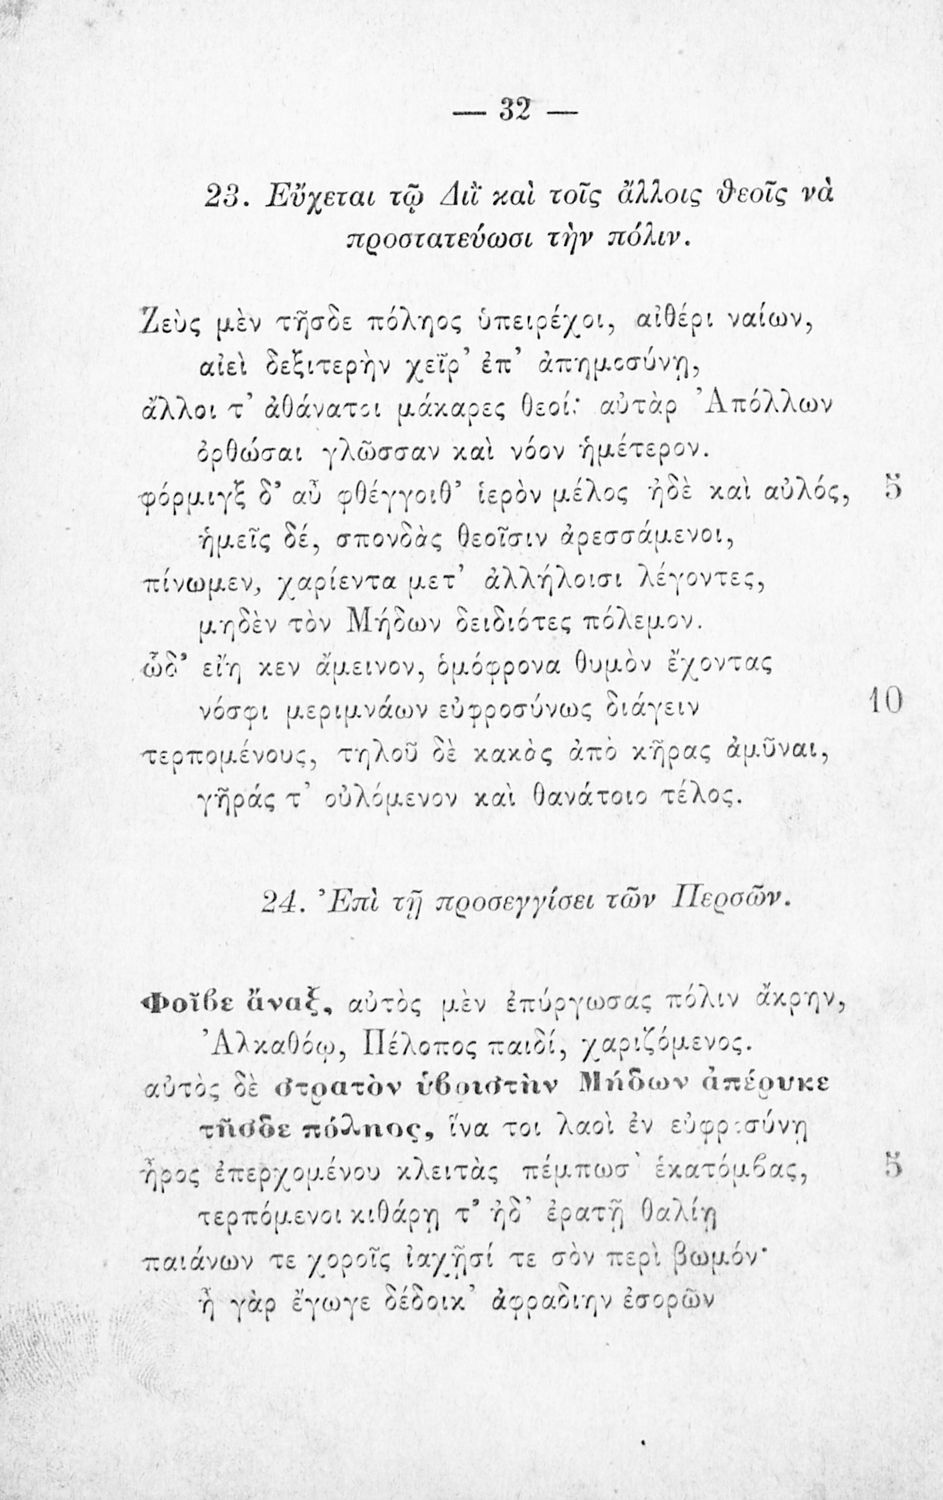 — 32 —
23. Εὔχεται τῷ Διῒ καὶ τοῖς ἄλλοις θεοῖς νὰ
προστατεύωσι τὴν πόλιν.
Ζεὺς μὲν τῆσδε πόληος ὑπειρέχοι, αἰθέρι ναίων,
αἰεὶ δεξιτερὴν χεῖρ’ ἐπ’ ἀπημοσύνῃ,
ἄλλοι τ’ ἀθάνατοι μάκαρες θεοί· αὐτὰρ Ἀπόλλων
ὀρθώσαι γλῶσσαν καὶ νόον ἡμέτερον.
φόρμιγξ δ’ αὖ φθέγγοιθ’ ἱερὸν μέλος ἠδὲ καὶ αὐλός, 5
ἡμεῖς δέ, σπονδὰς θεοῖσιν ἀρεσσάμενοι,
πίνωμεν, χαρίεντα μετ’ ἀλλήλοισι λέγοντες,
μηδὲν τὸν Μήδων δειδιότες πόλεμον.
ὧδ’ εἴη κεν ἄμεινον, ὁμόφρονα θυμὸν ἔχοντας
νόσφι μεριμνάων εὐφροσύνως διάγειν 10
τερπομένους, τηλοῦ δὲ κακὰς ἀπὸ κῆρας ἀμῦναι,
γῆράς τ’ οὐλόμενον καὶ θανάτοιο τέλος.
24. Ἐπὶ τῇ προσεγγίσει τῶν Περσῶν.
Φοῖβε ἄναξ, αὐτὸς μὲν ἐπύργωσας πόλιν ἄκρην,
Ἀλκαθόῳ, Πέλοπος παιδί, χαριζόμενος.
αὐτὸς δὲ στρατὸν ὑβριστὴν Μήδων ἀπέρυκε
τῆσδε πόληος, ἵνα τοι λαοὶ ἐν εὐφροσύνῃ
ἦρος ἐπερχομένου κλειτὰς πέμπωσ’ ἑκατόμβας, 5
τερπόμενοι κιθάρῃ τ’ ἠδ’ ἐρατῇ θαλίῃ
παιάνων τε χοροῖς ἰαχῇσί τε σὸν περὶ βωμόν·
ἦ γὰρ ἔγωγε δέδοικ’ ἀφραδιην ἐσορῶν